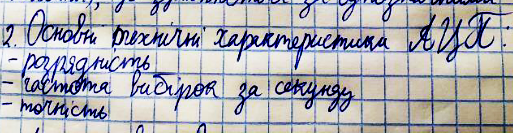 2. Основні технічні характеристика АЦП:
- розрядність
- частота вибірок за секунду
- точність